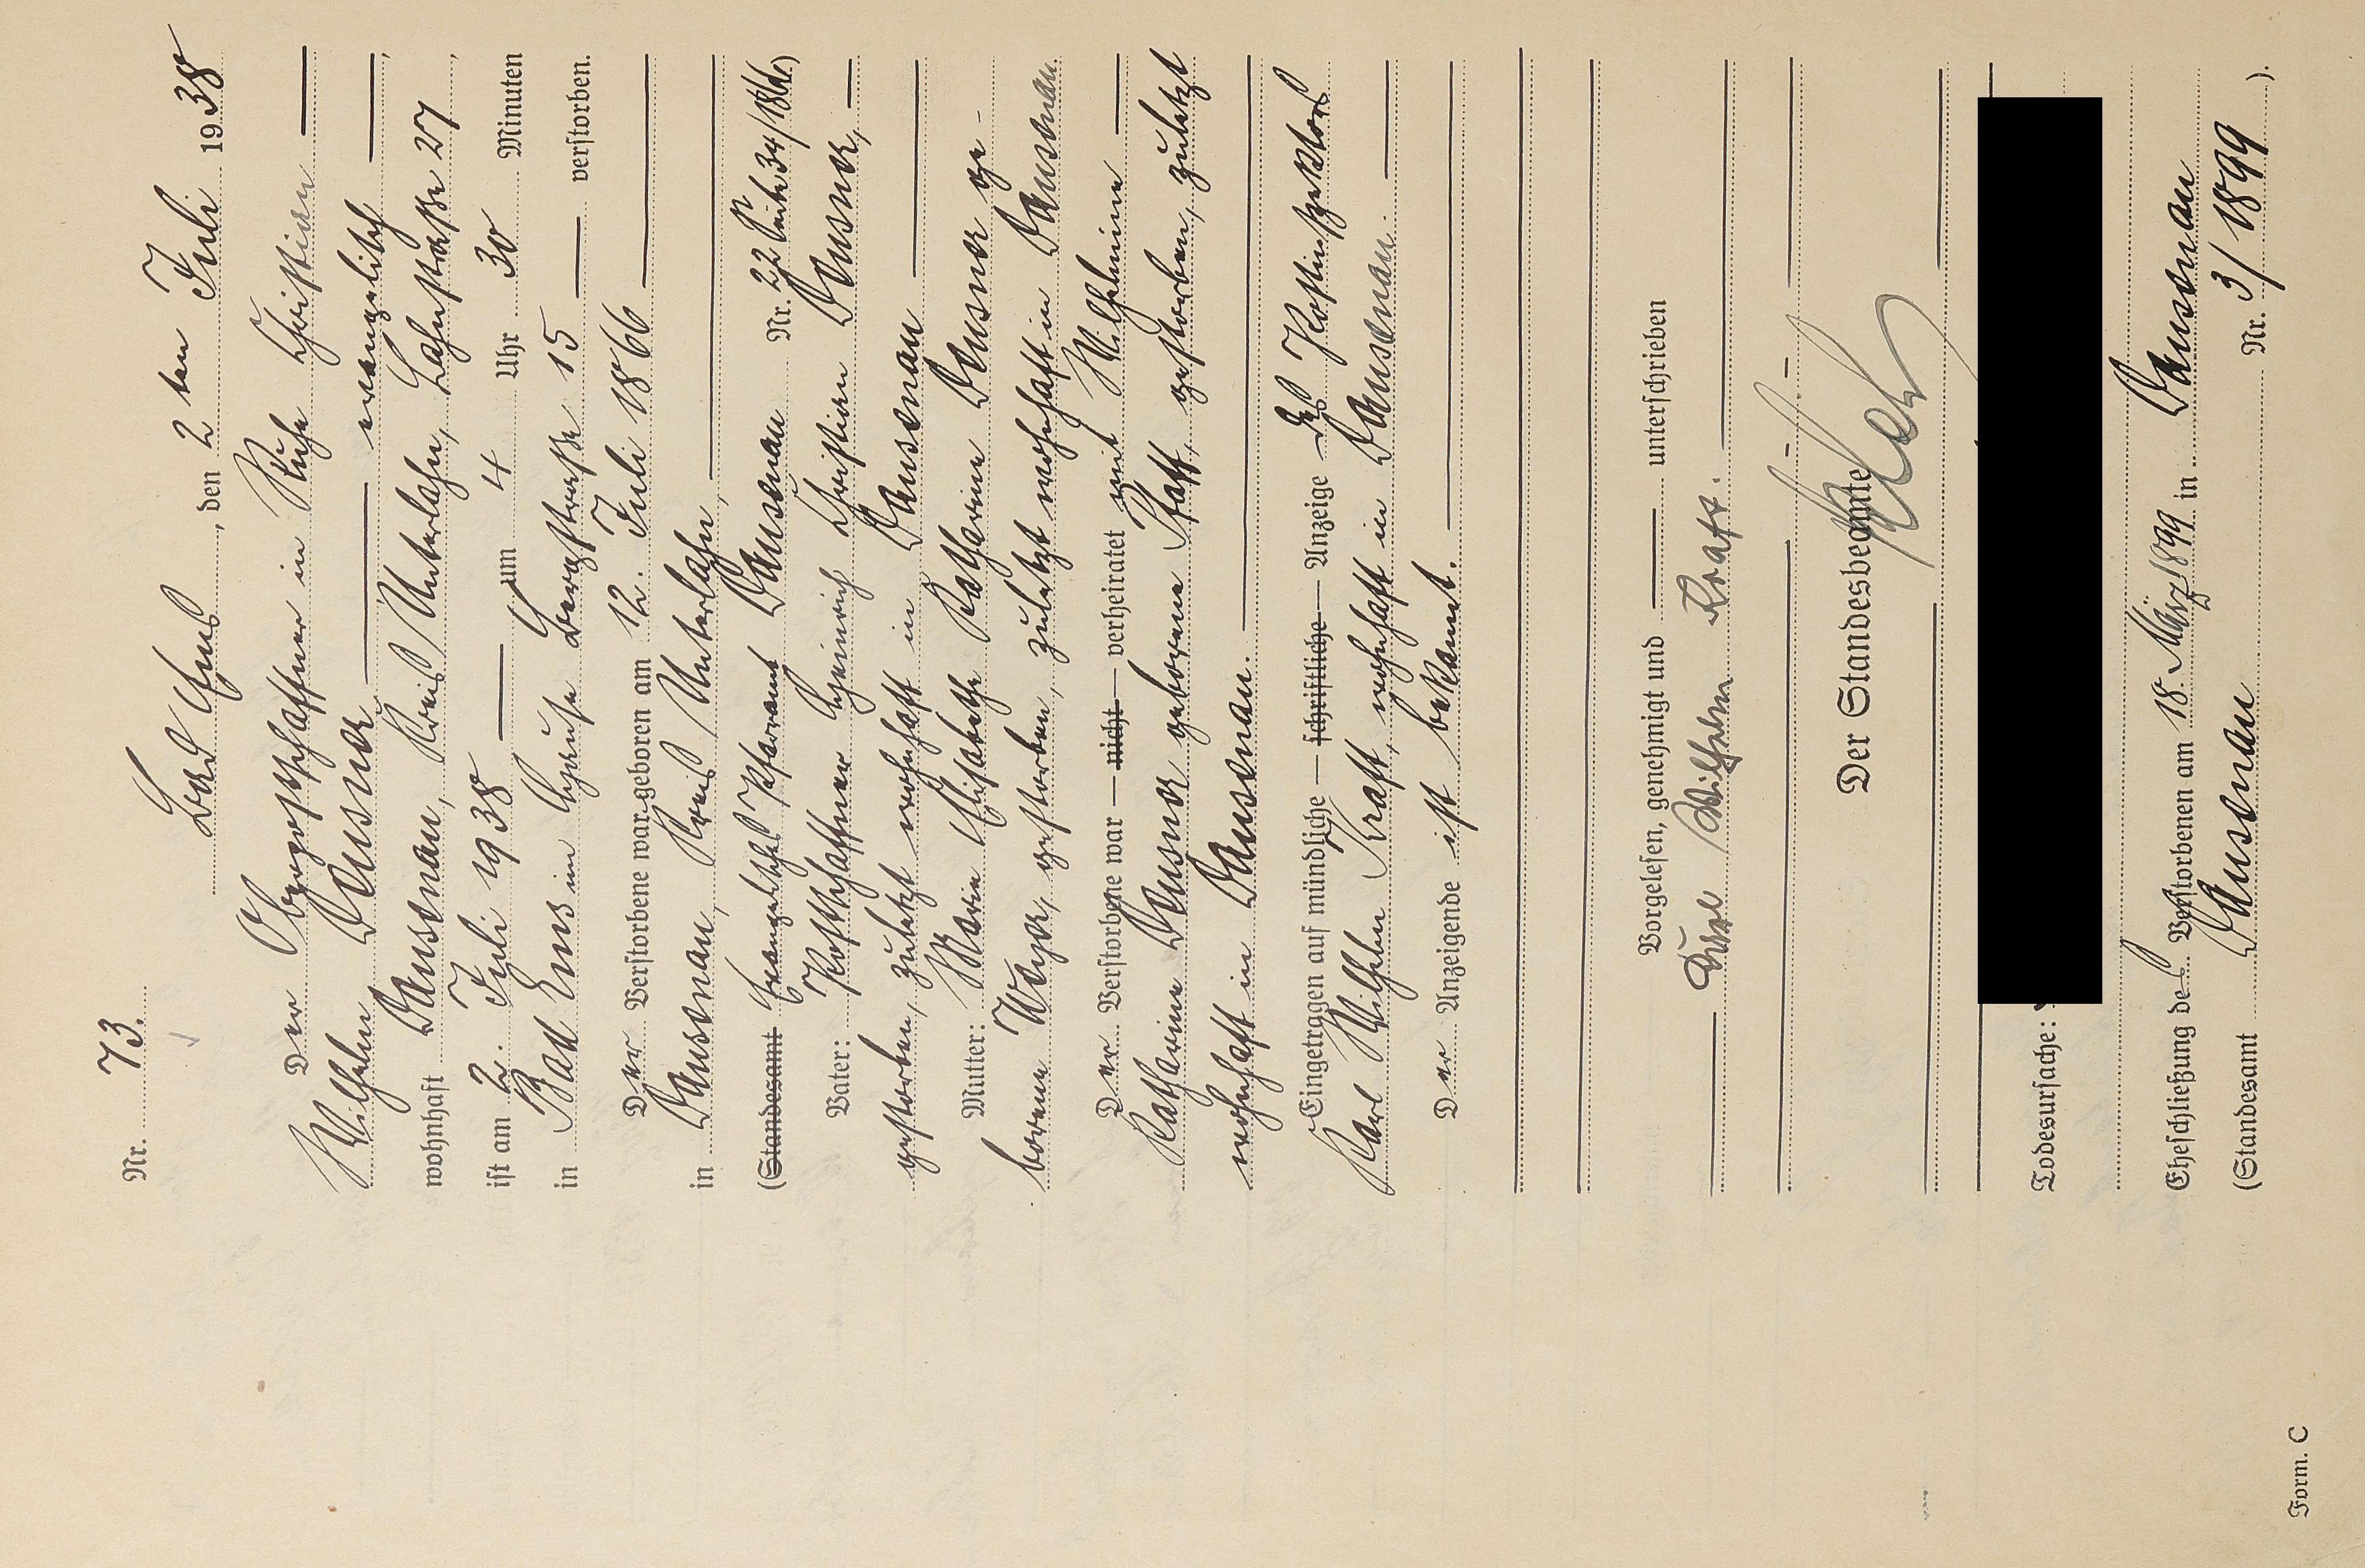 Nr. 73.
Bad Ems, den 2ten Juli 1938
Der Oberpostschaffner in Ruhe Christian
Wilhelm Dausner evangelisch,
wohnhaft Dausenau, Kreis Unterlahn, Lahnstraße 27,
ist am 2. Juli 1938 um 4 Uhr 30 Minuten
in Bad Ems im Hause Bergstraße 15 verstorben.
Der Verstorbene war geboren am 12. Juli 1866
in Dausenau, Kreis Unterlahn,
(Standesamt Evangelisches Pfarramt Dausenau Nr. 22 Seite 34/1866)
Vater: Postschaffner Heinrich Christian
gestorben, zuletzt wohnhaft in Dausenau
Mutter: Marie Elisabethe Katharine ge-
borene gestorben, zuletzt wohnhaft in Dausenau.
Der Verstorbene war — nicht — verheiratet mit Wilhelmine
Katharine geborene Pfaff, gestorben, zuletzt
wohnhaft in Dausenau.
Eingetragen auf mündliche — schriftliche — Anzeige des Postinspektors
Karl Wilhelm Kraft, wohnhaft in Dausenau.
Der Anzeigende ist bekannt.
Vorgelesen, genehmigt und unterschrieben
Karl Wilhelm Kraft.
Der Standesbeamte
Todesursache:
Eheschließung des Verstorbenen am 18. März 1899 in Dausenau
(Standesamt Dausenau Nr. 3/1899).
Form. C